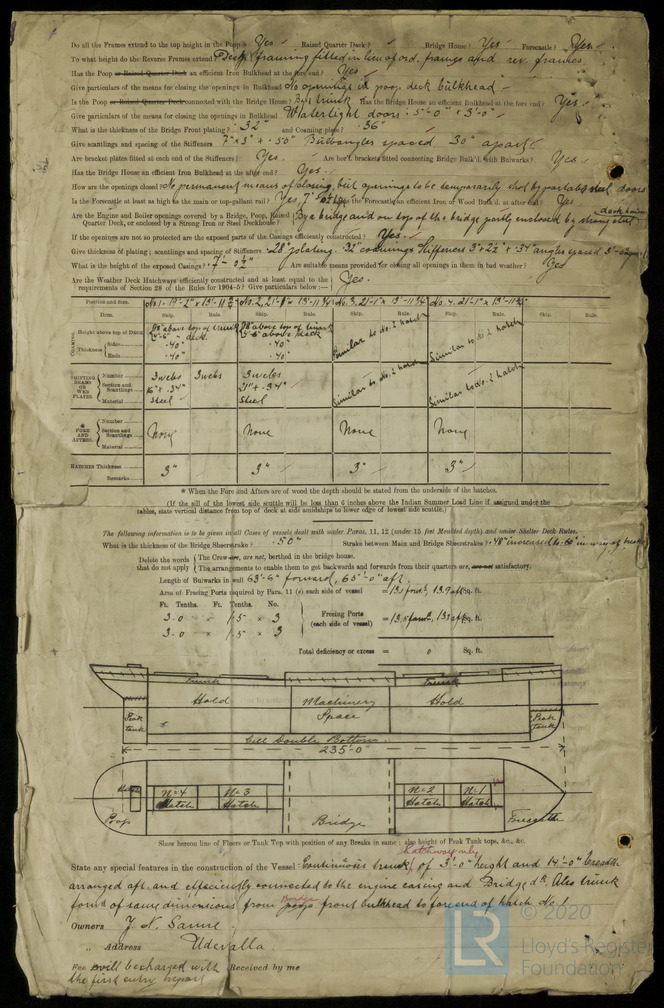 Do all the Frames extend to the top height in the Poop? Yes Raised Quarter Deck? Bridge House? Yes Forecastle? Yes
To what height do the Reverse Frames extend? Deep framing fitted in lieu of ord. frames and rev. frames.
Has the Poop or Raised Quarter Deck an efficient Iron Bulkhead at the fore end? Yes
Give particulars of the means for closing the openings in Bulkhead No openings in poop deck bulkhead
Is the Poop or Raised Quarter Deck connected with the Bridge House? By a trunk Has the Bridge House an efficient Bulkhead at the fore end? Yes
Give particulars of the means for closing the openings in Bulkhead Watertight doors 5'-0" × 3'-0"
What is the thickness of the Bridge Front plating? .32" and Coaming plate? .36"
Give scantlings and spacing of the Stiffeners 7" × 3" × .50" Bulb angles spaced 30" apart
Are bracket plates fitted at each end of the Stiffeners? Yes Are hor'l brackets fitted connecting Bridge Bulk'd. with Bulwarks? Yes
Has the Bridge House an efficient Iron Bulkhead at the after end? Yes
How are the openings closed? No permanent means of closing, but openings to be temporarily shut by portable steel doors
Is the Forecastle at least as high as the main or top-gallant rail? Yes, 7' Has the Forecastle an efficient Iron or Wood Bulk'd. at after end? Yes
Are the Engine and Boiler openings covered by a Bridge, Poop, Raised Quarter Deck, or enclosed by a Strong Iron or Steel Deckhouse? By a bridge and on top of the bridge partly enclosed by strong steel deck house
If the openings are not so protected are the exposed parts of the Casings efficiently constructed? Yes
Give thickness of plating; scantlings and spacing of Stiffeners .28" plating .32" coamings Stiffeners 3" × 2½" × .34" angles spaced 3'-0" apart
What is the height of the exposed Casings? 7'-0½" Are suitable means provided for closing all openings in them in bad weather? Yes
Are the Weather Deck Hatchways efficiently constructed and at least equal to the requirements of Section 28 of the Rules for 1904-5? Give particulars below:— Yes.
Position and Size. No. 1 - 19'-2" × 13'-11¾" No. 2, 21'-1" × 13'-11¾" No. 3, 21'-1" × 13'-11¾" No. 4, 21'-1" × 13'-11¾"
Item. Ship. Rule. Ship. Rule. Ship. Rule. Ship. Rule. Ship. Rule.
COAMING Height above top of Deck above top of trunk above deck above top of trunk above deck Similar to No. 2 hatch Similar to No. 2 hatch
Thickness Sides .40" .40"
Ends .40" .40"
SHIFTING BEAMS OR WEB PLATES Number 3 webs 3 webs 3 webs Similar to No. 2 hatch Similar to No. 2 hatch
Section and Scantlings 16" × .34" 21" × .34"
Material steel steel
* FORE AND AFTERS. Number
Section and Scantlings None None None None
Material
HATCHES Thickness 3" 3" 3" 3"
Remarks
* When the Fore and Afters are of wood the depth should be stated from the underside of the hatches.
(If the sill of the lowest side scuttle will be less than 6 inches above the Indian Summer Load Line if assigned under the
tables, state vertical distance from top of deck at side amidships to lower edge of lowest side scuttle.)
The following information is to be given in all Cases of vessels dealt with under Paras. 11, 12 (under 15 feet Moulded depth) and under Shelter Deck Rules.
What is the thickness of the Bridge Sheerstrake? .50" Strake between Main and Bridge Sheerstrakes? .48" increased to .60" in way of breaks
Delete the words that do not apply The Crew are, are not, berthed in the bridge house.
The arrangements to enable them to get backwards and forwards from their quarters are, are not satisfactory.
Length of Bulwarks in well 63'-6" forward, 65'-0" aft.
Area of Freeing Ports required by Para. 11 (e) each side of vessel = 13.1 for'd, 13.9 aft Sq. ft.
Ft. Tenths. Ft. Tenths. No.
3.0 × 1.5 × 3 Freeing Ports (each side of vessel) = 13.5 for'd, 13.5 aft Sq. ft.
3.0 × 1.5 × 3
Total deficiency or excess = 0 Sq. ft.
Trunk Trunk
Hold Machinery Space Hold
Peak tank Peak tank
Cell Double Bottom
235'-0"
Hatch No 4 Hatch No 3 Hatch No 2 Hatch No 1 Hatch
Poop Bridge Forecastle
Show hereon line of Floors or Tank Top with position of any Breaks in same; also height of Peak Tank tops, &c., &c.
State any special features in the construction of the Vessel: Continuous trunk of 3'-0" height and 14'-0" breadth
arranged aft. and efficiently connected to the engine casing and Bridge dk. Also trunk
for'd of same dimensions from poop Bridge front bulkhead to fore end of hatch No. 1
Owners J. N. Sanne.
„ Address Udevalla.
Fee will be charged with Received by me
the first entry report
LR © 2020
Lloyd's Register
Foundation